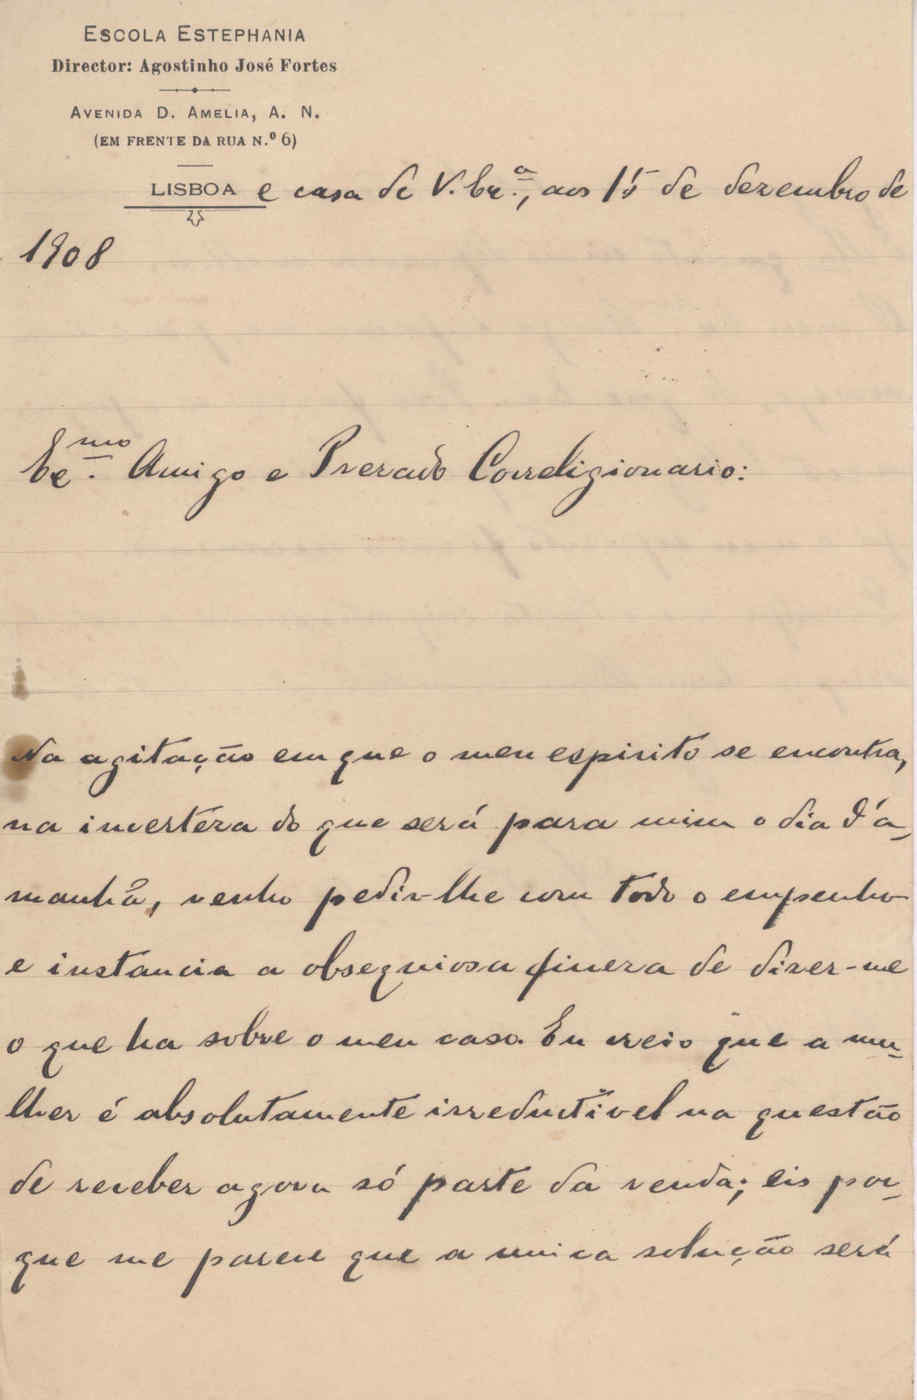 ESCOLA ESTEPHANIA
Director: Agostinho José Fortes
AVENIDA D. AMELIA, A. N.
(EM FRENTE DA RUA N.º 6)
LISBOA e casa de V. Ex.ª, aos 15 de dezembro de
1908
Ex.mo Amigo e Prezado Correligionario:
Na agitação em que o meu espirito se encontra,
na incertêza do que será para mim o dia d'á-
manhã, venho pedir-lhe com todo o empenho
e instancia a obsequiosa fineza de dizer-me
o que ha sobre o meu caso. Eu creio que a mu-
lher é absolutamente irreductivel na questão
de receber agora só parte da renda; eis por-
que me parece que a unica solução será